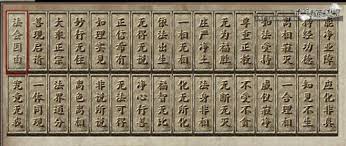 法会因由
善现启请
大乘正宗
妙行无住
如理实见
正信希有
无得无说
依法出生
一相无相
庄严净土
无为福胜
尊重正教
如法受持
离相寂灭
持经功德
能净业障
究竟无我
一体同观
法界通分
离色离相
非说所说
无法可得
净心行善
福智无比
化无所化
法身非相
无断无灭
不受不贪
威仪寂净
一合理相
知见不生
应化非真